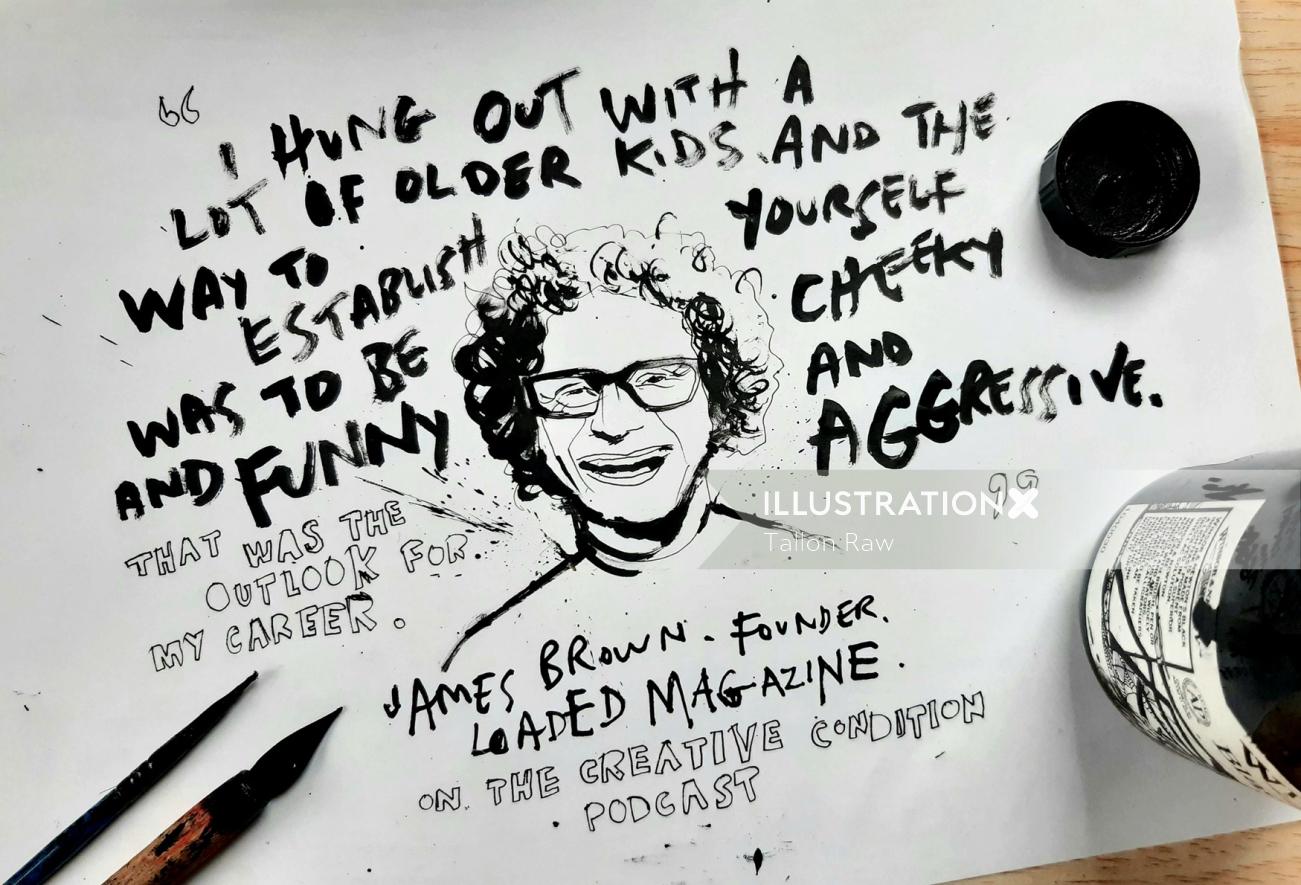 “
I HUNG OUT WITH A
LOT OF OLDER KIDS AND THE
WAY TO ESTABLISH YOURSELF
WAS TO BE CHEEKY
AND FUNNY AND AGGRESSIVE.
”
THAT WAS THE
OUTLOOK FOR.
MY CAREER.
JAMES BROWN. FOUNDER.
LOADED MAGAZINE.
ON THE CREATIVE CONDITION
PODCAST
ILLUSTRATIONX
Tailon Raw